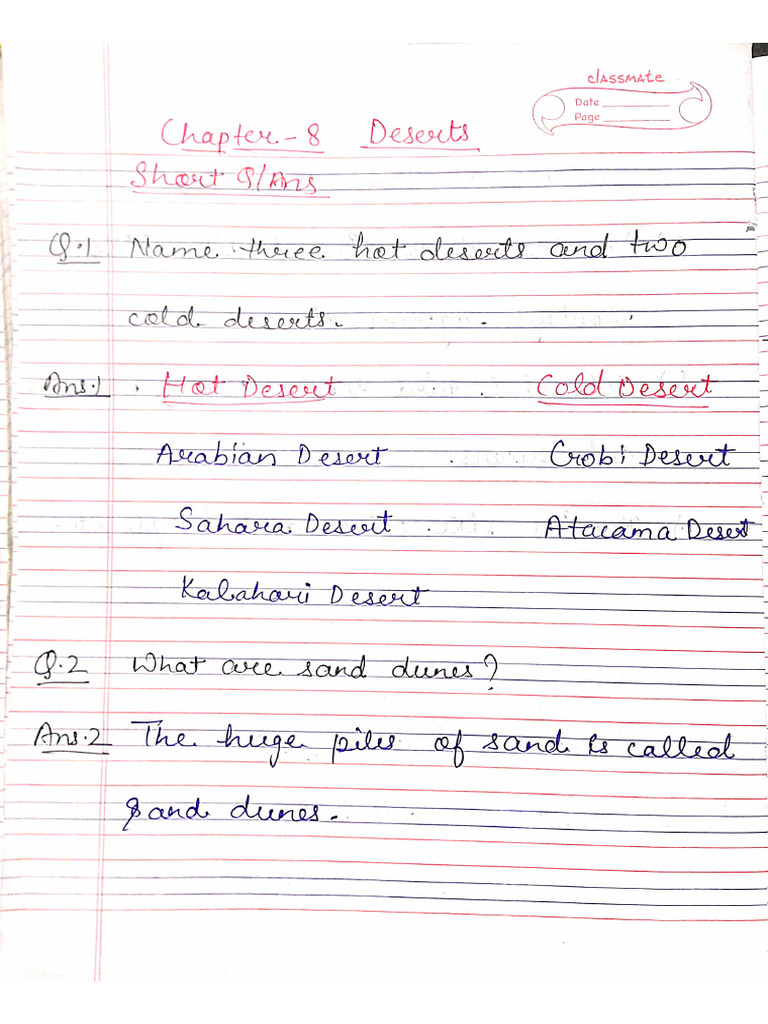 classmate
Date
Page
Chapter-8 Deserts
Short Q/Ans
Q.1 Name three hot deserts and two
cold deserts.
Ans.1 Hot Desert Cold Desert
Arabian Desert Gobi Desert
Sahara Desert Atacama Desert
Kalahari Desert
Q.2 What are sand dunes?
Ans.2 The huge piles of sand is called
sand dunes.